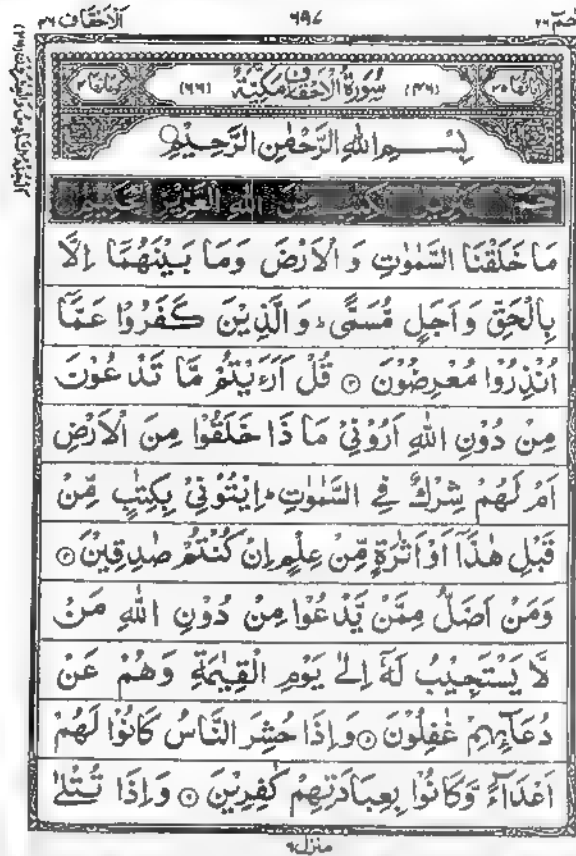 الاحقاف ٤٦
٦٩٨
حٰمٓ ٢٦
سُوۡرَةُ الۡاَحۡقَافِ مَكِّيَّةٌ
(٤٦)
(٦٦)
بِسۡمِ اللهِ الرَّحۡمٰنِ الرَّحِيۡمِ
حٰمٓ تَنۡزِيۡلُ الۡكِتٰبِ مِنَ اللهِ الۡعَزِيۡزِ الۡحَكِيۡمِ
مَا خَلَقۡنَا السَّمٰوٰتِ وَ الۡاَرۡضَ وَمَا بَيۡنَهُمَآ اِلَّا
بِالۡحَقِّ وَ اَجَلٍ مُّسَمًّى ؕ وَ الَّذِيۡنَ كَفَرُوۡا عَمَّآ
اُنۡذِرُوۡا مُعۡرِضُوۡنَ ۝۳ قُلۡ اَرَءَيۡتُمۡ مَّا تَدۡعُوۡنَ
مِنۡ دُوۡنِ اللهِ اَرُوۡنِىۡ مَا ذَا خَلَقُوۡا مِنَ الۡاَرۡضِ
اَمۡ لَهُمۡ شِرۡكٌ فِى السَّمٰوٰتِ ؕ اِيۡتُوۡنِىۡ بِكِتٰبٍ مِّنۡ
قَبۡلِ هٰذَآ اَوۡ اَثٰرَةٍ مِّنۡ عِلۡمٍ اِنۡ كُنۡتُمۡ صٰدِقِيۡنَ ۝۴
وَمَنۡ اَضَلُّ مِمَّنۡ يَّدۡعُوۡا مِنۡ دُوۡنِ اللهِ مَنۡ
لَّا يَسۡتَجِيۡبُ لَهٗۤ اِلٰى يَوۡمِ الۡقِيٰمَةِ وَهُمۡ عَنۡ
دُعَآٮِٕهِمۡ غٰفِلُوۡنَ ۝۵ وَاِذَا حُشِرَ النَّاسُ كَانُوۡا لَهُمۡ
اَعۡدَآءً وَّكَانُوۡا بِعِبَادَتِهِمۡ كٰفِرِيۡنَ ۝۶ وَاِذَا تُتۡلٰى
منزل ٦